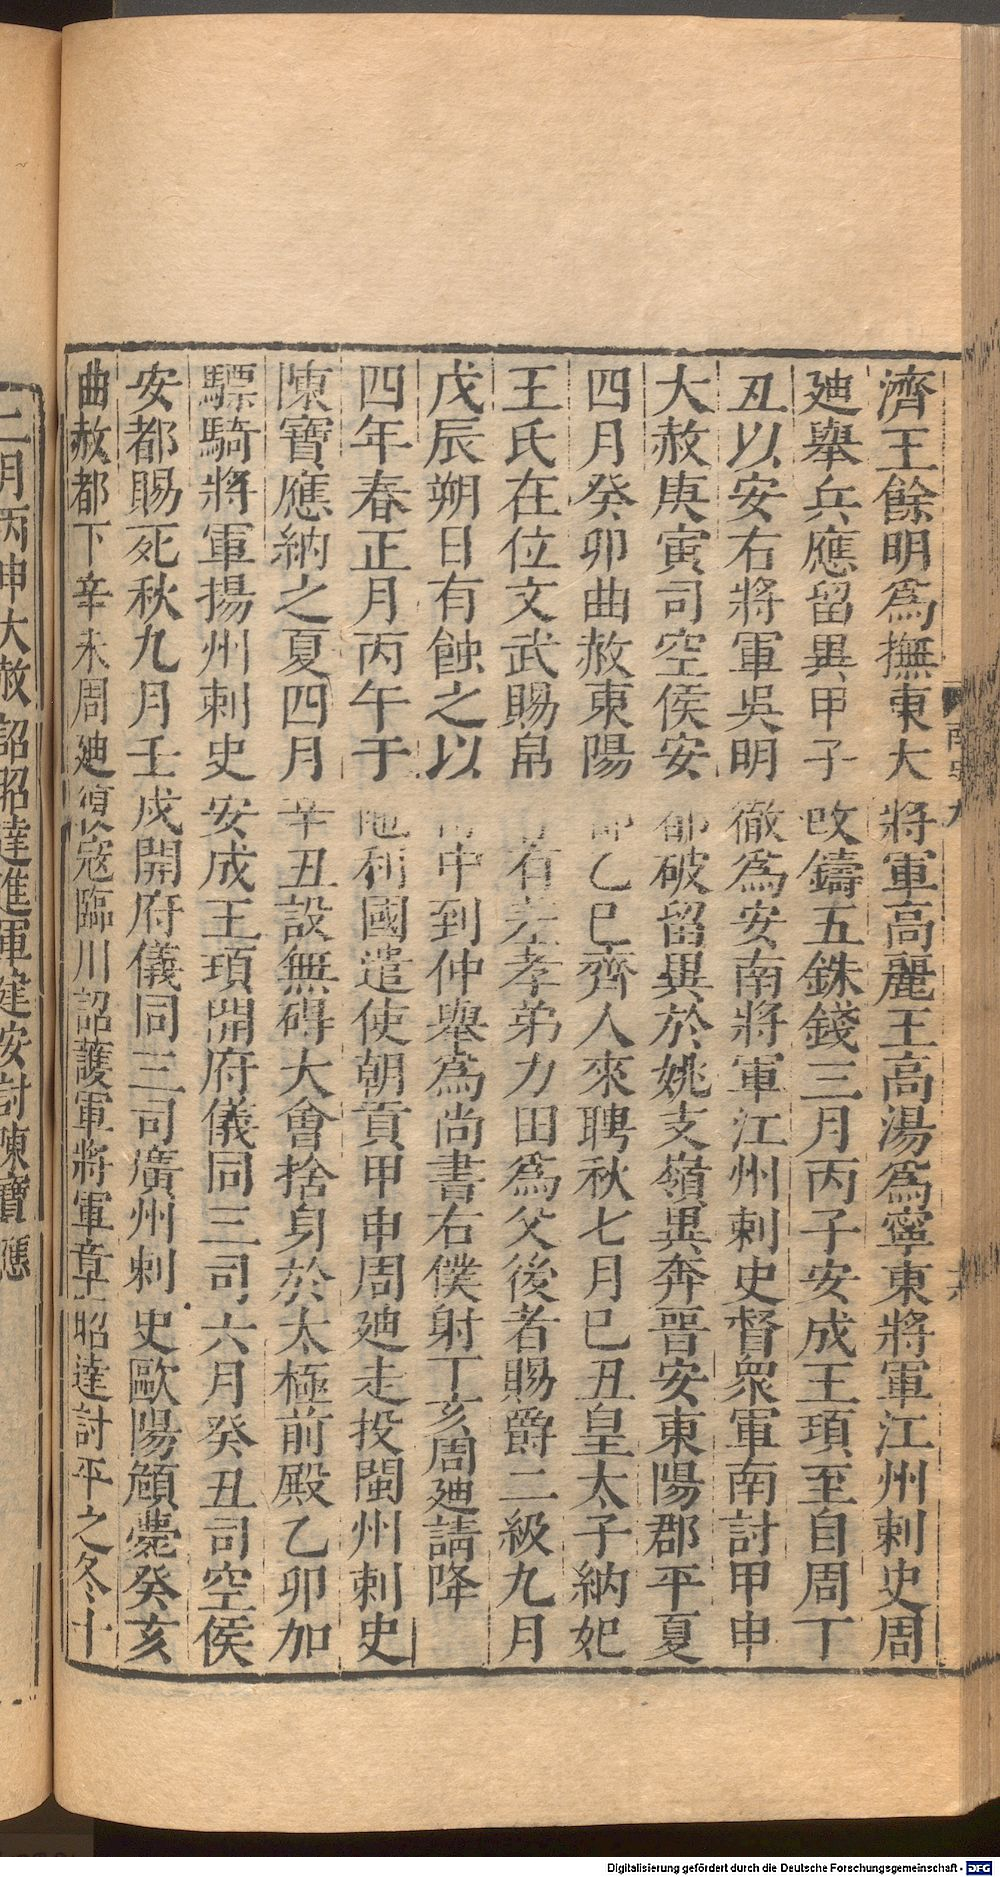 濟王餘明爲撫東大將軍高麗王高湯爲寧東將軍江州刺史周
廸舉兵應留異甲子改鑄五銖錢三月丙子安成王頊至自周丁
丑以安右將軍吳明徹爲安南將軍江州刺史督衆軍南討甲申
大赦庚寅司空侯安都破留異於姚支嶺異奔晉安東陽郡平夏
四月癸卯曲赦東陽郡乙巳齊人來聘秋七月巳丑皇太子納妃
王氏在位文武賜帛有差孝弟力田爲父後者賜爵二級九月
戊辰朔日有蝕之以中到仲舉爲尚書右僕射丁亥周廸請降
四年春正月丙午于陁利國遣使朝貢甲申周廸走投閩州刺史
陳寶應納之夏四月辛丑設無碍大會捨身於太極前殿乙卯加
驃騎將軍揚州刺史安成王頊開府儀同三司六月癸丑司空侯
安都賜死秋九月壬戌開府儀同三司廣州刺史歐陽頠薨癸亥
曲赦都下辛未周廸復寇臨川詔護軍將軍章昭達討平之冬十
二月丙申大赦詔昭達進軍建安討陳寶應
南史九
Digitalisierung gefördert durch die Deutsche Forschungsgemeinschaft - DFG